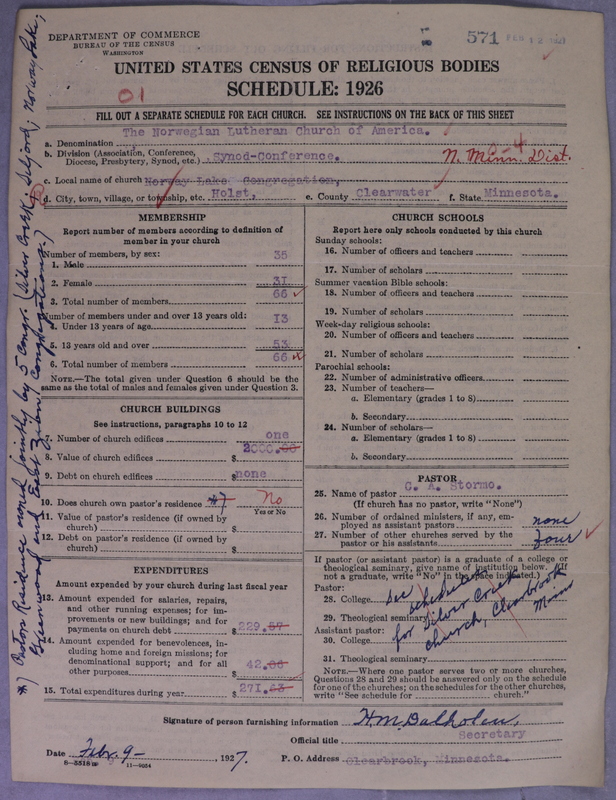 DEPARTMENT OF COMMERCE
BUREAU OF THE CENSUS
WASHINGTON
571 FEB 12
UNITED STATES CENSUS OF RELIGIOUS BODIES
SCHEDULE: 1926
01
FILL OUT A SEPARATE SCHEDULE FOR EACH CHURCH. SEE INSTRUCTIONS ON THE BACK OF THIS SHEET
The Norwegian Lutheran Church of America.
a. Denomination
b. Division (Association, Conference, Diocese, Presbytery, Synod, etc.) Synod-Conference. N. Minn. Dist.
c. Local name of church Norway Lake Congregation,
d. City, town, village, or township, etc. Holst, e. County Clearwater f. State Minnesota.
MEMBERSHIP
Report number of members according to definition of member in your church
Number of members, by sex:
1. Male 35
2. Female 31
3. Total number of members 66
Number of members under and over 13 years old:
4. Under 13 years of age 13
5. 13 years old and over 53
6. Total number of members 66
NOTE.—The total given under Question 6 should be the same as the total of males and females given under Question 3.
CHURCH BUILDINGS
See instructions, paragraphs 10 to 12
7. Number of church edifices one
8. Value of church edifices $ 2000.00
9. Debt on church edifices $ none
10. Does church own pastor's residence #7 No
Yes or No
11. Value of pastor's residence (if owned by church) $
12. Debt on pastor's residence (if owned by church) $
EXPENDITURES
Amount expended by your church during last fiscal year
13. Amount expended for salaries, repairs, and other running expenses; for improvements or new buildings; and for payments on church debt $ 229.57
14. Amount expended for benevolences, including home and foreign missions; for denominational support; and for all other purposes $ 42.
15. Total expenditures during year $ 271.43
CHURCH SCHOOLS
Report here only schools conducted by this church
Sunday schools:
16. Number of officers and teachers
17. Number of scholars
Summer vacation Bible schools:
18. Number of officers and teachers
19. Number of scholars
Week-day religious schools:
20. Number of officers and teachers
21. Number of scholars
Parochial schools:
22. Number of administrative officers
23. Number of teachers—
a. Elementary (grades 1 to 8)
b. Secondary
24. Number of scholars—
a. Elementary (grades 1 to 8)
b. Secondary
PASTOR
25. Name of pastor C. A. Stormo.
(If church has no pastor, write "None")
26. Number of ordained ministers, if any, employed as assistant pastors none
27. Number of other churches served by the pastor or his assistants four
If pastor (or assistant pastor) is a graduate of a college or theological seminary, give name of institution below. (If not a graduate, write "No" in the place indicated.)
Pastor:
28. College
29. Theological seminary
Assistant pastor:
30. College
31. Theological seminary
see schedule for Silver Creek church, Clearbrook Minn
NOTE.—Where one pastor serves two or more churches, Questions 28 and 29 should be answered only on the schedule for one of the churches; on the schedules for the other churches, write "See schedule for church."
Signature of person furnishing information H. M. Dalholen,
Official title Secretary
Date Febr. 9- , 1927. P. O. Address Clearbrook, Minnesota.
11—9054
#) Pastors Residence owned jointly by 5 Congr. (Silver Creek, Seljord, Norway Lake,
Greenwood and East Zion Congregations.)